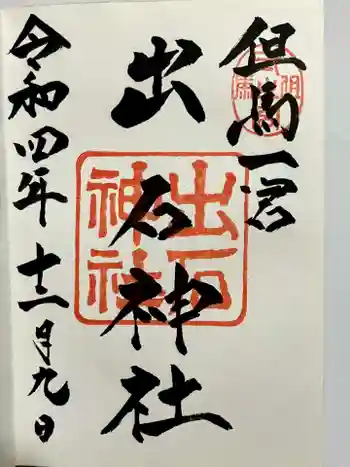 但馬一宮
出石神社
令和四年十一月九日
出石
神社